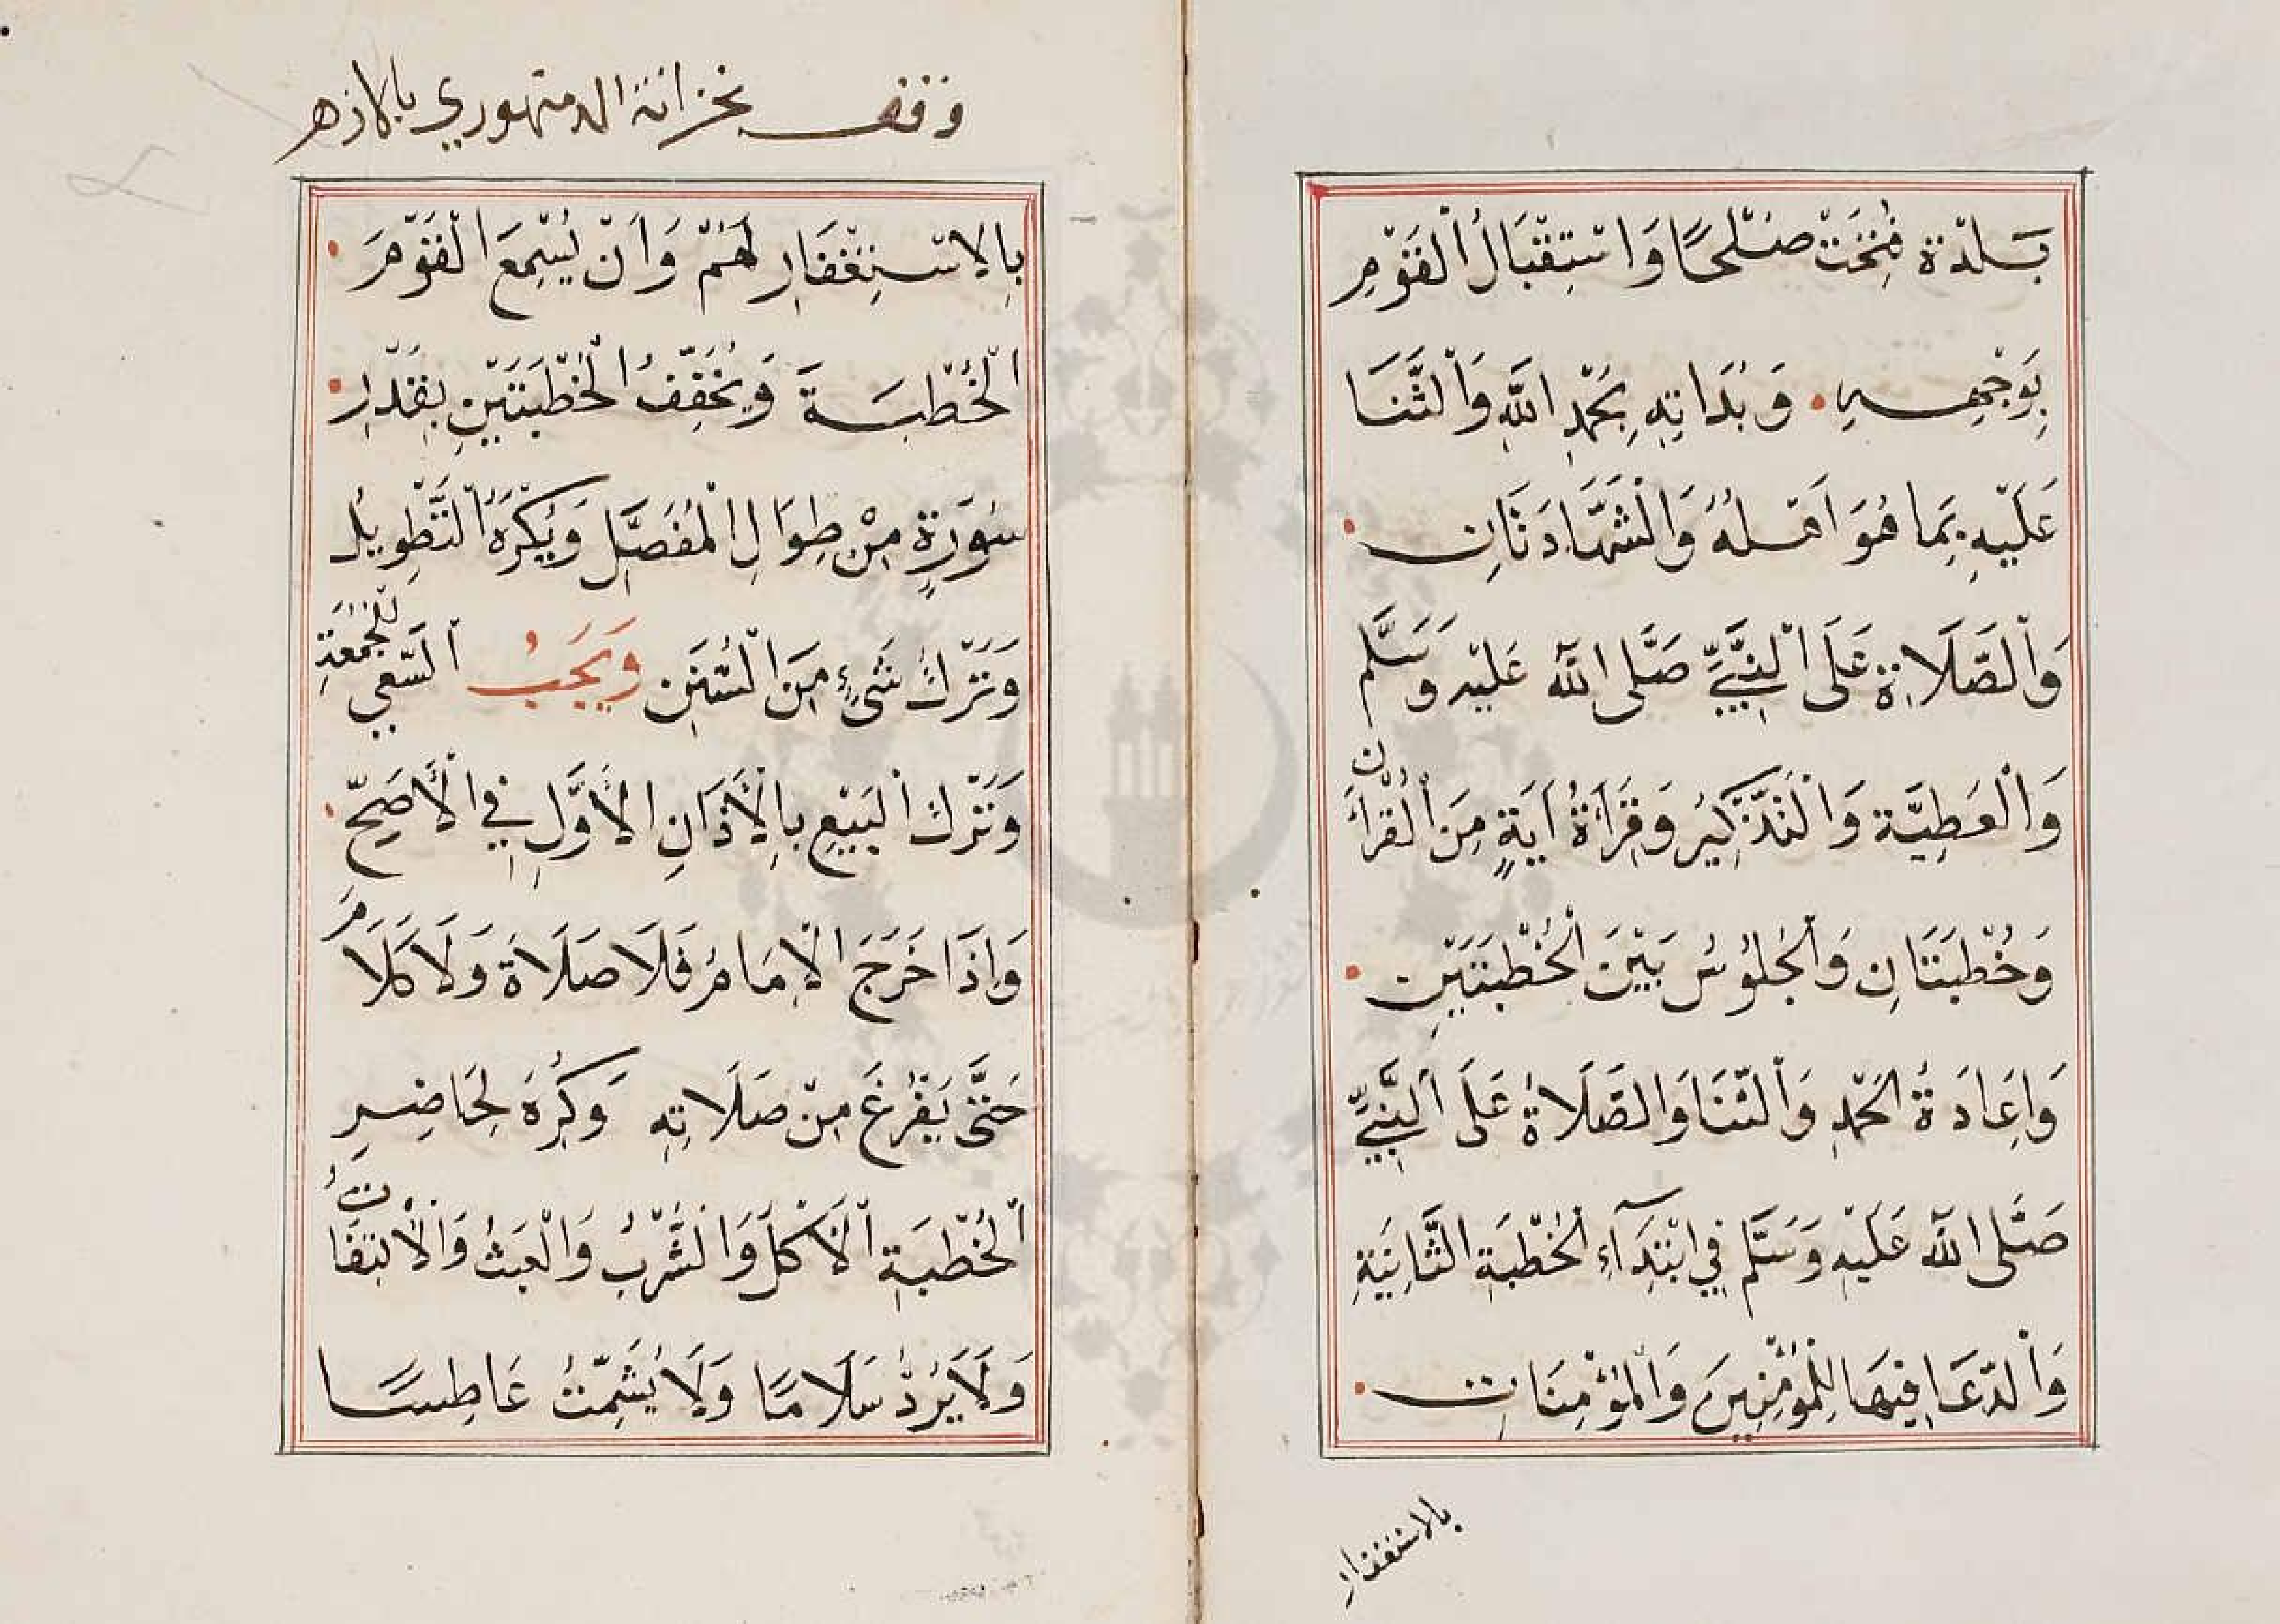 بَلْدَة فُتِحَتْ صُلْحًا وَاسْتِقْبَالُ الْقَوْمِ
بِوَجْهِهِ • وَبُدَاتِهِ بِحَمْدِ اللَّهِ وَالْثَّنَا
عَلَيْهِ بِمَا هُوَ اَهْلُهُ وَالْشَهَادَتَانِ •
وَالْصَّلَاةِ عَلَى الْنَبِيِّ صَلَّى اللَّه عَلَيْهِ وَسَلَّم
وَالْعَطِيَّة وَالْتَذْكِيُر وَقِرَأَةُ اَيَةٍ مِنَ الْقُرْأَن
وَخُطْبَتَانِ وَالْجُلُوُسُ بَيْنَ الْخُطْبَتَيْنِ •
وَاِعَادَةُ الحَمْدِ وَالْثَنَا وَالصَّلَاةُ عَلَى الْنَبِيِّ
صَلَّى اللَّه عَلَيْهِ وَسَلَّم فِي ابْتِدَآءِ الْخُطْبَةِ الثَّانِيَةِ
وَالْدّعَا فِيهَا لِلْمُؤْمِنِيِنَ وَالْمُؤْمِنَاتِ •
بالاستغفار
وقف بخزانة الدمنهوري بالازهر
بِالِاسْتِغْفَارِ لَهُمْ وَاَنْ يُسْمِعَ الْقَوْمَ •
الْخُطْبَةَ وَيُخَفِّفُ الْخُطْبَتَيْنِ بِقَدْرِ •
سُوَرَةٍ مِنْ طِوَالِ الْمُفَصَّلِ وَيُكْرَهُ الْتَّطْوِيلُ
وَتَرْكُ شَيْءٍ مِنَ الْسُنَنِ وَيَجَبُ الْسَعْي لِلْجُمُعَةِ
وَتَرْكَ الْبَيْعِ بِالْأَذَانِ الْأَوَّلِ فِي الْأَصَحِّ •
وَاِذَا خَرَجَ الْاِمَامُ فَلَا صَلَاةَ وَلَا كَلَامَ
حَتَّى يَفْرُغَ مِنْ صَلَاتِهِ وَكُرِهَ لِحَاضِرِ
الْخُطْبَةِ الْأَكْلُ وَالْشُرْبُ وَالْعَبَثُ وَالْالتِفَاتُ
وَلَا يَرُدُّ سَلَامًا وَلَا يُشَمِّتُ عَاطِسًا